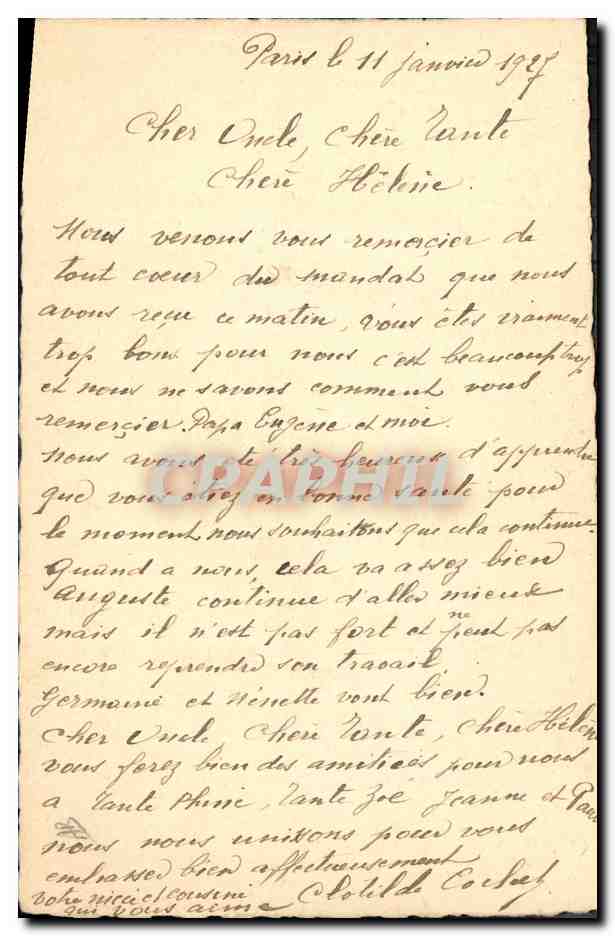 Paris le 11 janvier 1927
Cher Oncle, Chère Tante
Chère Hélène.
Nous venons vous remerçier de
tout coeur du mandat que nous
avons reçu ce matin, vous êtes vraiment
trop bons pour nous c'est beaucoup trop
et nous ne savons comment vous
remerçier. Papa Eugène et moi.
Nous avons été très heureux d'apprendre
que vous étiez en bonne santé pour
le moment nous souhaitons que cela continue.
Quand a nous, cela va assez bien
Auguste continue d'aller mieux
mais il n'est pas fort et ne peut pas
encore reprendre son travail.
Germaine et Nénette vont bien.
Cher Oncle, Chère Tante, Chère Hélène
vous ferez bien des amitiées pour nous
a Tante Phine, Tante Zoé Jeanne et
nous nous unissons pour vous
embrasser bien affectueusement
votre nièce et cousine
qui vous aime Clotilde
CPAPHIL